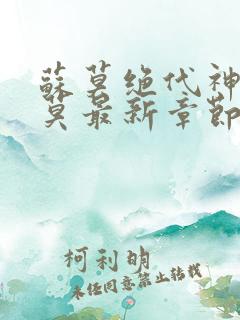 蘇莫绝代神
莫最新章節
柯利明
未经同意禁止转载